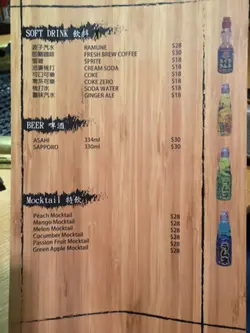 SOFT DRINK 飲料
波子汽水 RAMUNE $28
即磨咖啡 FRESH BREW COFFEE $30
雪碧 SPRITE $18
忌廉梳打 CREAM SODA $18
可口可樂 COKE $18
零系可樂 COKE ZERO $18
梳打水 SODA WATER $18
薑味汽水 GINGER ALE $18
BEER 啤酒
ASAHI 334ml $30
SAPPORO 330ml $30
Mocktail 特飲
Peach Mocktail $28
Mango Mocktail $28
Melon Mocktail $28
Cucumber Mocktail $28
Passion Fruit Mocktail $28
Green Apple Mocktail $28